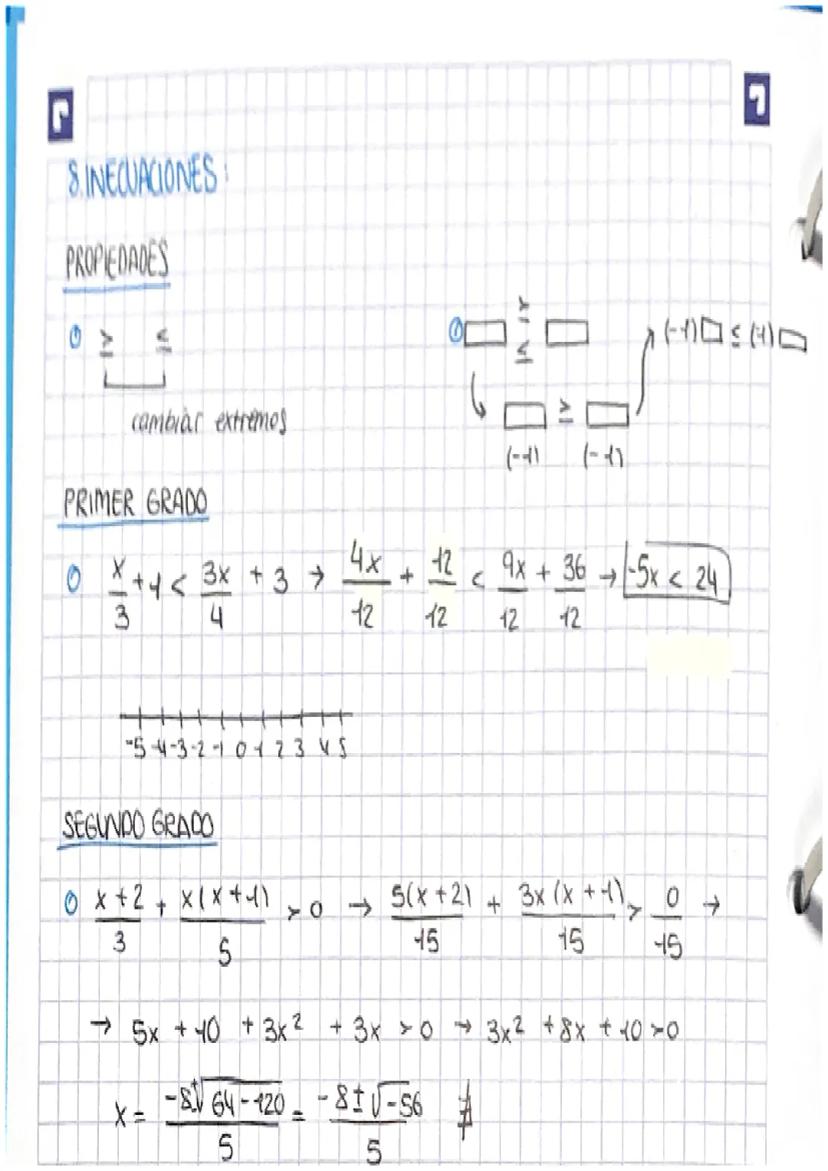 8. INECUACIONES:
PROPIEDADES
≥ ≤
cambiar extremos
□ ≥ □
≤
□ ≥ □
(-1) (-1)
(-1)□ ≤ (-1)□
PRIMER GRADO
x/3 + 1 < 3x/4 + 3 → 4x/12 + 12/12 < 9x/12 + 36/12 → -5x < 24
-5 -4 -3 -2 -1 0 1 2 3 4 5
SEGUNDO GRADO
(x+2)/3 + x(x+1)/5 > 0 → 5(x+2)/15 + 3x(x+1)/15 > 0/15 →
→ 5x + 10 + 3x² + 3x > 0 → 3x² + 8x + 10 > 0
x = (-8±√64-120)/5 = (-8±√-56)/5 ∄